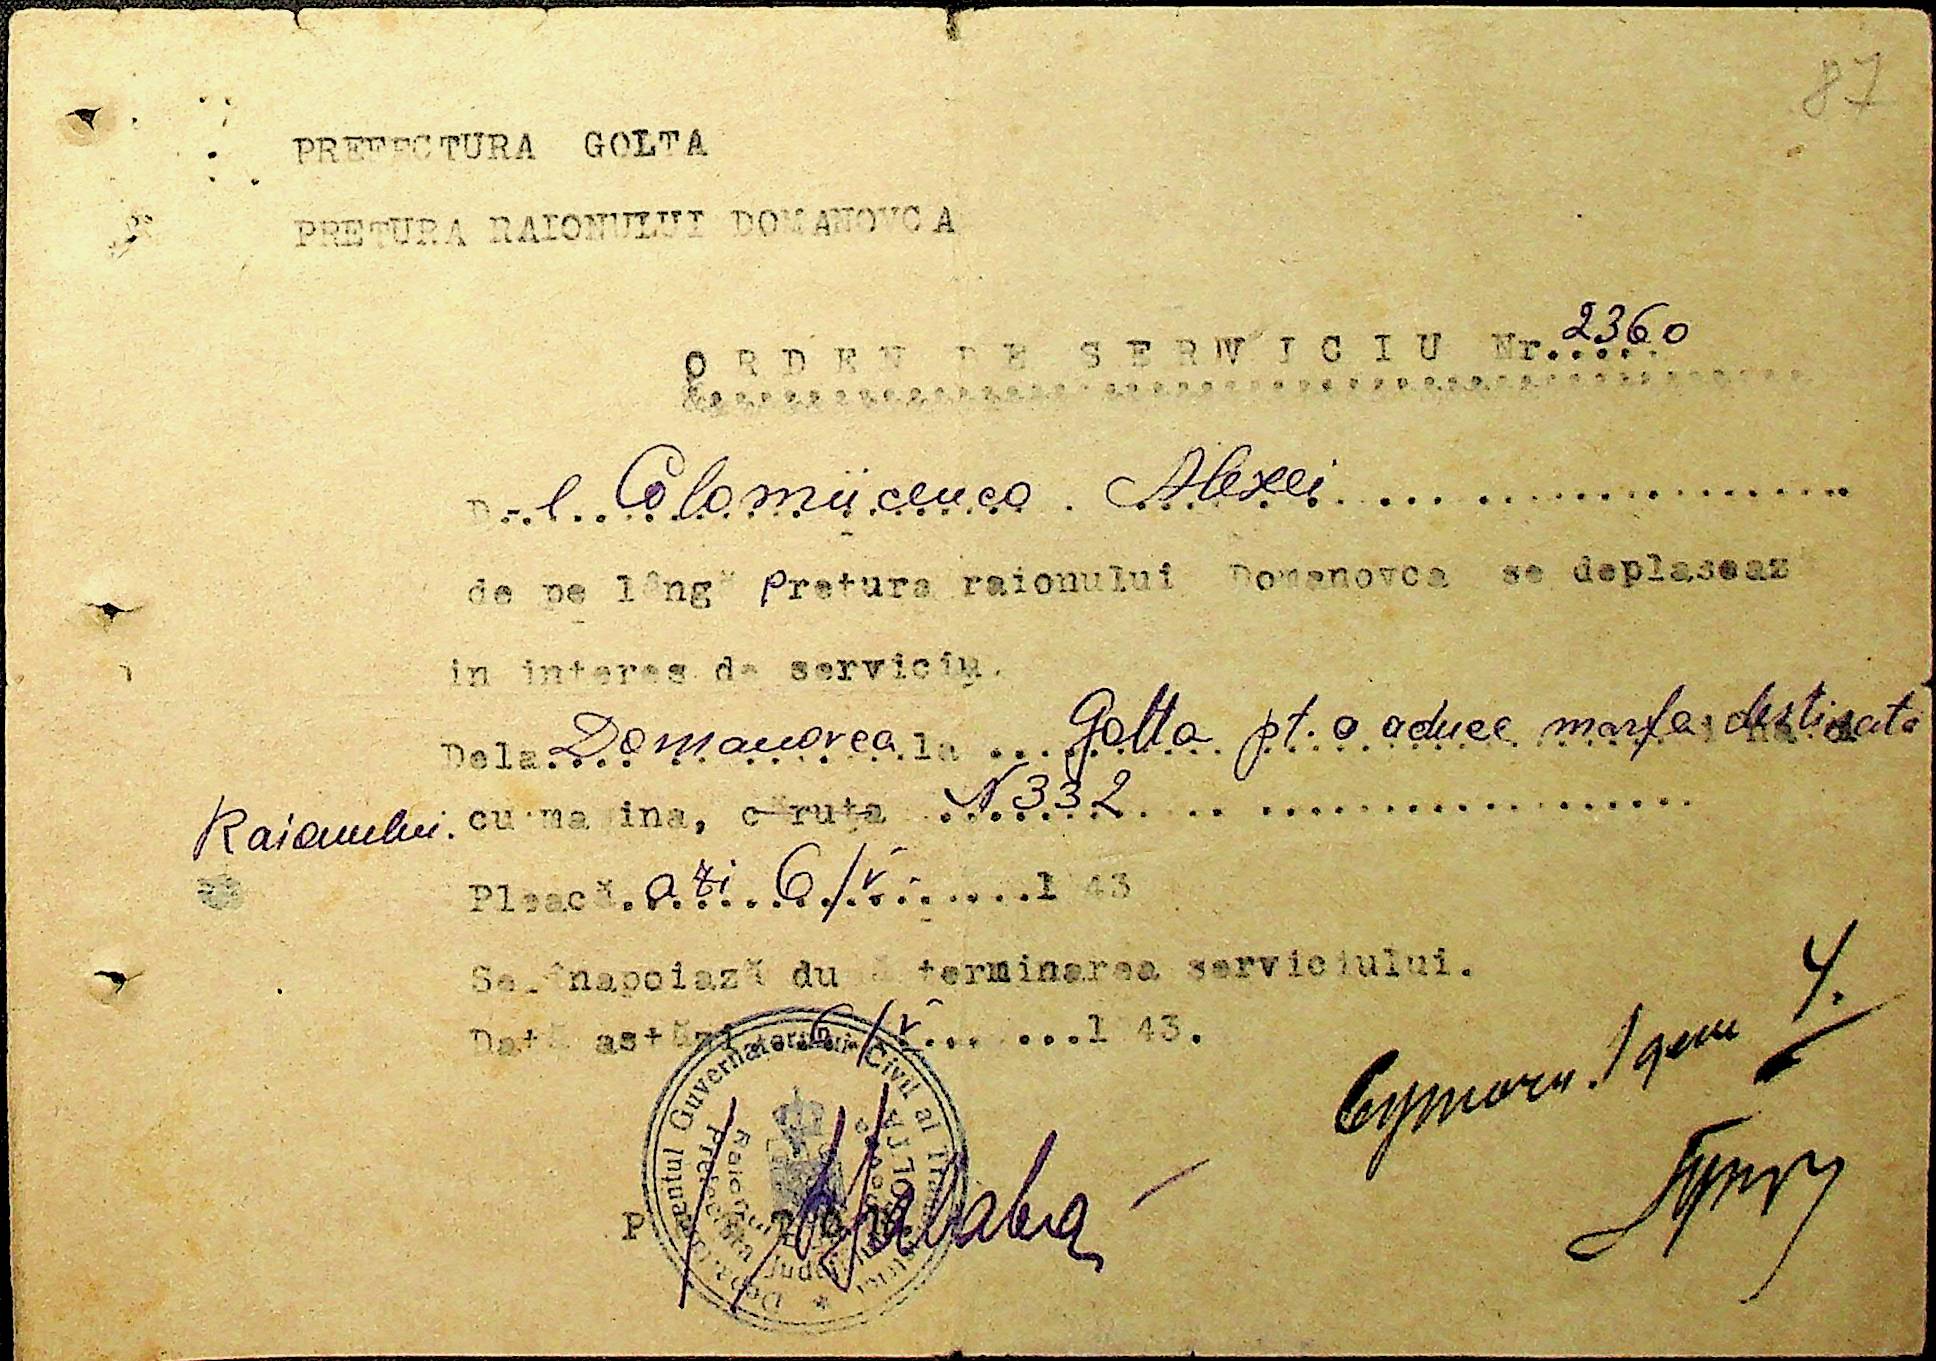 87
PREFECTURA GOLTA
PRETURA RAIONULUI DOMANOVCA
ORDEN DE SERVICIU Nr. 2360
D-l Colomiicenco Alexei
de pe lângă Pretura raionului Domanovca se deplasează
in interes de serviciu.
Dela Domanovca la Golta pt. a aduce marfa destinată
Raionului. cu mașina, căruța N 332
Pleacă azi 6/V 1943
Se înapoiază după terminarea serviciului.
Dată astăzi 6/V 1943.
Guvernatorul Civil al
Prefectura Jude GOLTA
Raionul